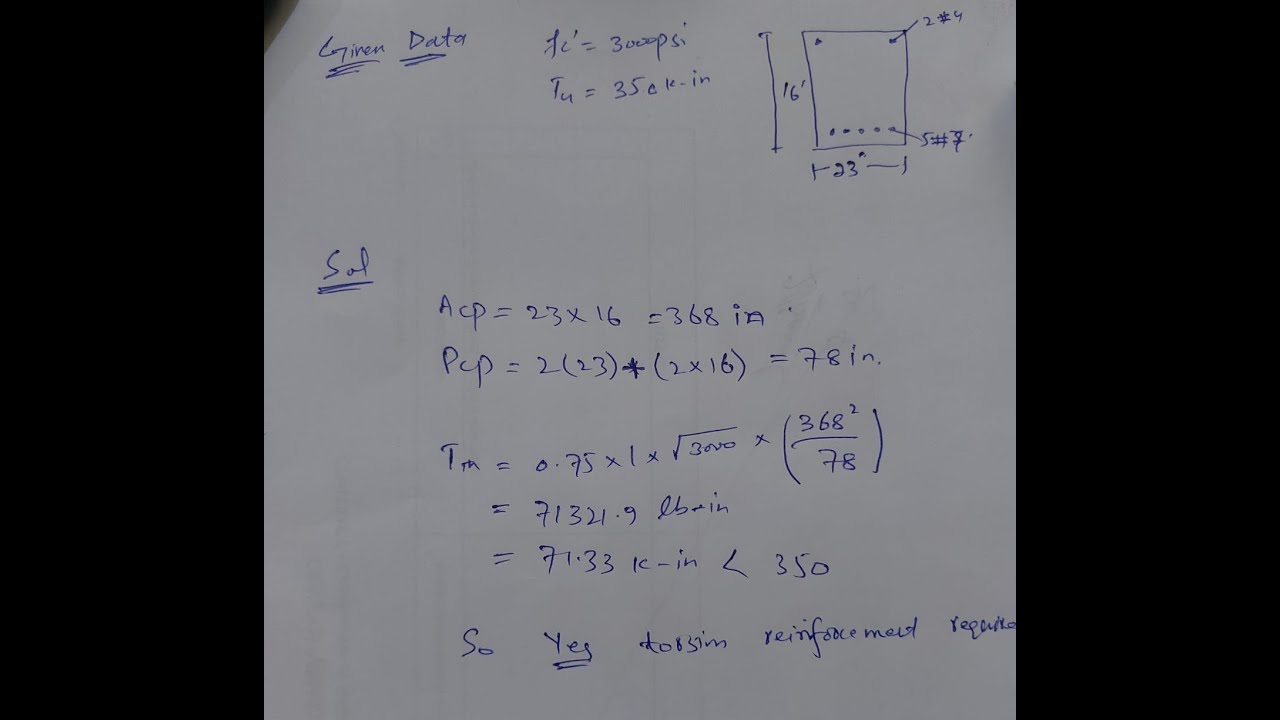 Given Data
fc' = 3000psi
Tu = 350 k-in
2#4
16'
5#7
23"
Sol
Acp = 23 x 16 = 368 in
Pcp = 2(23)+(2x16) = 78 in.
Tth = 0.75 x 1 x √3000 x (368²/78)
= 71321.9 lb-in
= 71.33 k-in < 350
So Yes torsion reinforcement require